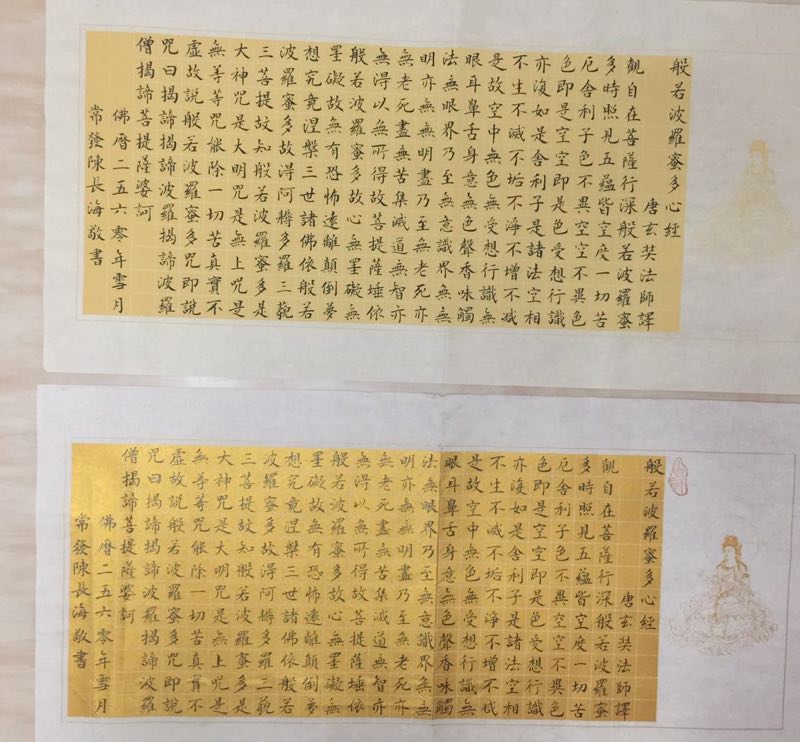 般若波羅蜜多心經
唐玄奘法師譯
觀自在菩薩行深般若波羅蜜
多時照見五蘊皆空度一切苦
厄舍利子色不異空空不異色
色即是空空即是色受想行識
亦復如是舍利子是諸法空相
不生不滅不垢不淨不增不減
是故空中無色無受想行識無
眼耳鼻舌身意無色聲香味觸
法無眼界乃至無意識界無無
明亦無無明盡乃至無老死亦
無老死盡無苦集滅道無智亦
無得以無所得故菩提薩埵依
般若波羅蜜多故心無罣礙無
罣礙故無有恐怖遠離顛倒夢
想究竟涅槃三世諸佛依般若
波羅蜜多故得阿耨多羅三藐
三菩提故知般若波羅蜜多是
大神咒是大明咒是無上咒是
無等等咒能除一切苦真實不
虛故說般若波羅蜜多咒即說
咒曰揭諦揭諦波羅揭諦波羅
僧揭諦菩提薩婆訶
佛曆二五六零年雪月
常發陳長海敬書
般若波羅蜜多心經
唐玄奘法師譯
觀自在菩薩行深般若波羅蜜
多時照見五蘊皆空度一切苦
厄舍利子色不異空空不異色
色即是空空即是色受想行識
亦復如是舍利子是諸法空相
不生不滅不垢不淨不增不減
是故空中無色無受想行識無
眼耳鼻舌身意無色聲香味觸
法無眼界乃至無意識界無無
明亦無無明盡乃至無老死亦
無老死盡無苦集滅道無智亦
無得以無所得故菩提薩埵依
般若波羅蜜多故心無罣礙無
罣礙故無有恐怖遠離顛倒夢
想究竟涅槃三世諸佛依般若
波羅蜜多故得阿耨多羅三藐
三菩提故知般若波羅蜜多是
大神咒是大明咒是無上咒是
無等等咒能除一切苦真實不
虛故說般若波羅蜜多咒即說
咒曰揭諦揭諦波羅揭諦波羅
僧揭諦菩提薩婆訶
佛曆二五六零年雪月
常發陳長海敬書